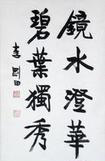 鏡水澄華
碧葉獨秀